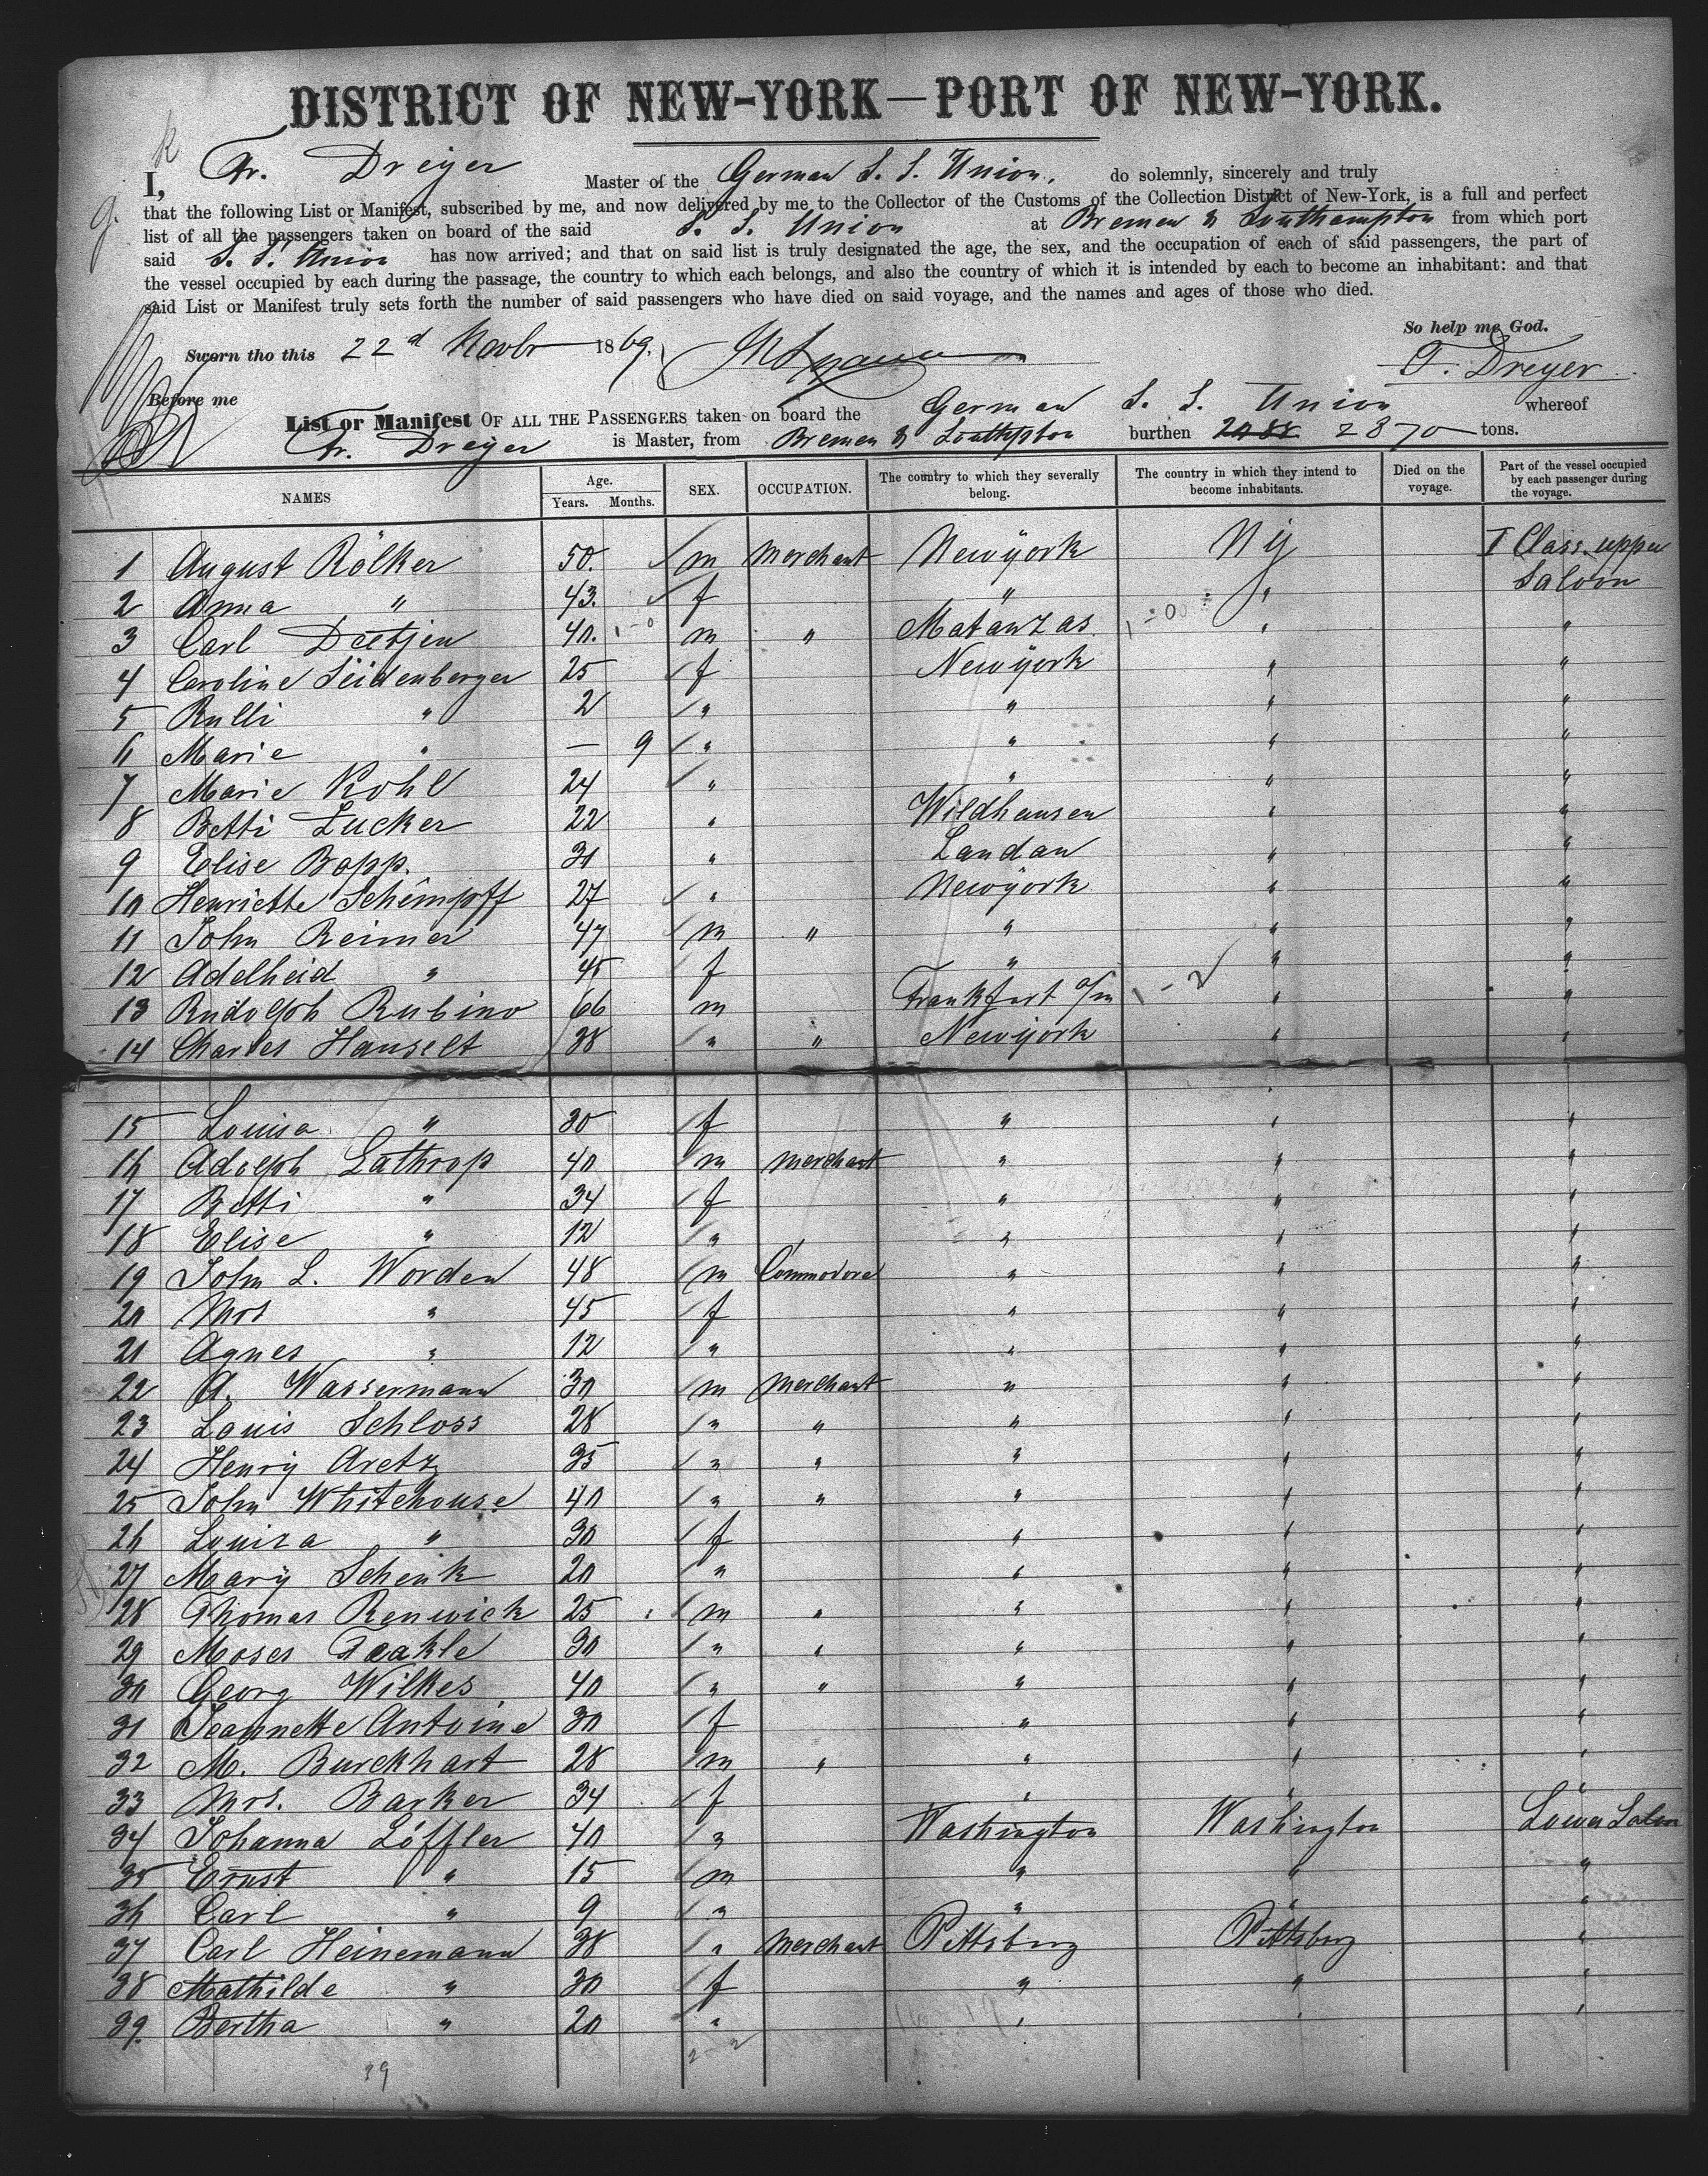 DISTRICT OF NEW-YORK—PORT OF NEW-YORK.
I, Fr. Dreyer Master of the German S. S. Union, do solemnly, sincerely and truly
that the following List or Manifest, subscribed by me, and now delivered by me to the Collector of the Customs of the Collection District of New-York, is a full and perfect
list of all the passengers taken on board of the said S. S. Union at Bremen & Southampton from which port
said S. S. Union has now arrived; and that on said list is truly designated the age, the sex, and the occupation of each of said passengers, the part of
the vessel occupied by each during the passage, the country to which each belongs, and also the country of which it is intended by each to become an inhabitant: and that
said List or Manifest truly sets forth the number of said passengers who have died on said voyage, and the names and ages of those who died.
So help me God.
Sworn tho this 22d Novbr 1869.
F. Dreyer
Before me
List or Manifest OF ALL THE PASSENGERS taken on board the German S. S. Union whereof
Fr. Dreyer is Master, from Bremen & Southpton burthen 2870 tons.
NAMES Age. Years. Months. SEX. OCCUPATION. The country to which they severally belong. The country in which they intend to become inhabitants. Died on the voyage. Part of the vessel occupied by each passenger during the voyage.
1 August Rölker 50. m Merchant Newÿork Ny I Class upper
2 Anna " 43. f " " Saloon
3 Carl Deetjen 40. m " Matanzas " "
4 Caroline Seidenberger 25 f Newÿork " "
5 Rulli " 2 " " " "
6 Marie " — 9 " " " "
7 Marie Kohl 24 " " " "
8 Betti Lucker 22 " Wildhausen " "
9 Elise Bopp. 31 " Landau " "
10 Henriette Schimpff 27 " Newÿork " "
11 John Reimer 47 m " " " "
12 Adelheid " 45 f " " "
13 Rudolph Rubino 66 m Frankfurt a/m " "
14 Charles Hauselt 38 " " Newÿork " "
15 Louisa " 30 f " " "
16 Adolph Lathrop 40 m Merchant " " "
17 Betti " 34 f " " "
18 Elise " 12 " " " "
19 John L. Worden 48 m Commodore " " "
20 Mrs " 45 f " " "
21 Agnes " 12 " " " "
22 A. Wassermann 30 m Merchant " " "
23 Louis Schloss 28 " " " " "
24 Henry Aretz 35 " " " " "
25 John Whitehouse 40 " " " " "
26 Louiza " 30 f " " "
27 Marÿ Schenk 20 " " " "
28 Thomas Renwick 25 m " " " "
29 Moses 30 " " " " "
30 Georg Wilkes 40 " " " " "
31 Jeannette Antoine 30 f " " "
32 M. Burckhart 28 m " " " "
33 Mrs. Barker 34 f " " "
34 Johanna Löffler 40 " Washington Washington Lower Saloon
35 Ernst " 15 m " " "
36 Carl " 9 " " " "
37 Carl Heinemann 38 " Merchant Pittsburg Pittsburg "
38 Mathilde " 30 f " " "
39. Bertha " 20 " " " "
39